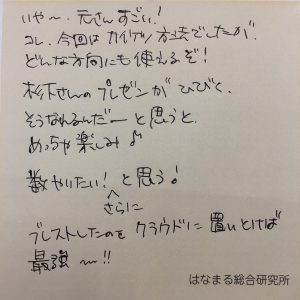 いや〜、元さんすごい!
コレ、今回はカイケツ方法でしたが、
どんな方向にも使えるぞ!
杉下さんのプレゼンがひびく。
そうなれるんだーと思うと、
めっちゃ楽しみ♪
数やりたい!と思う!
さらに
ブレストしたのをクラウドに置いとけば
最強〜!!
はなまる総合研究所